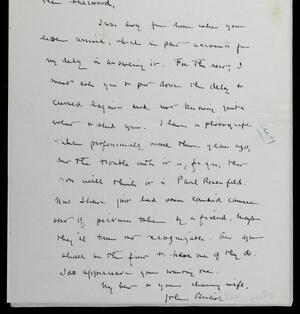 Dear Sherwood,
I was away from home when your
letter arrived, which in part accounts for
my delay in answering it. For the rest, I
must ask you to put down the delay to
cursed laziness and not knowing quite
what to send you. I have a photograph
taken professionally more than year ago,
but the trouble with it is, for you, that
you will think it is Paul Rosenfeld.
Now I have just had some candid camera
sort of pictures taken by a friend. Maybe
they'll turn out recognizable. And you
shall be the first to have one if they do.
I do appreciate your wanting one.
My best to your charming wife.
John